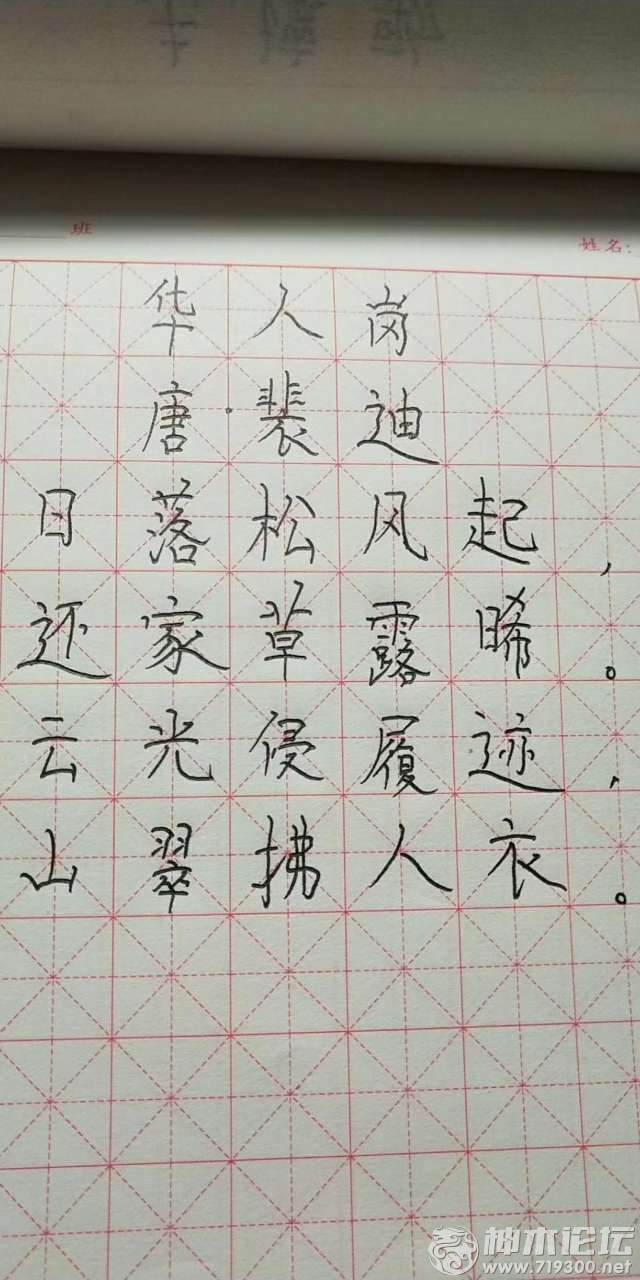 班 姓名:
华人岗
唐·裴迪
日落松风起,
还家草露晞。
云光侵履迹,
山翠拂人衣。
神木论坛
www.719300.net